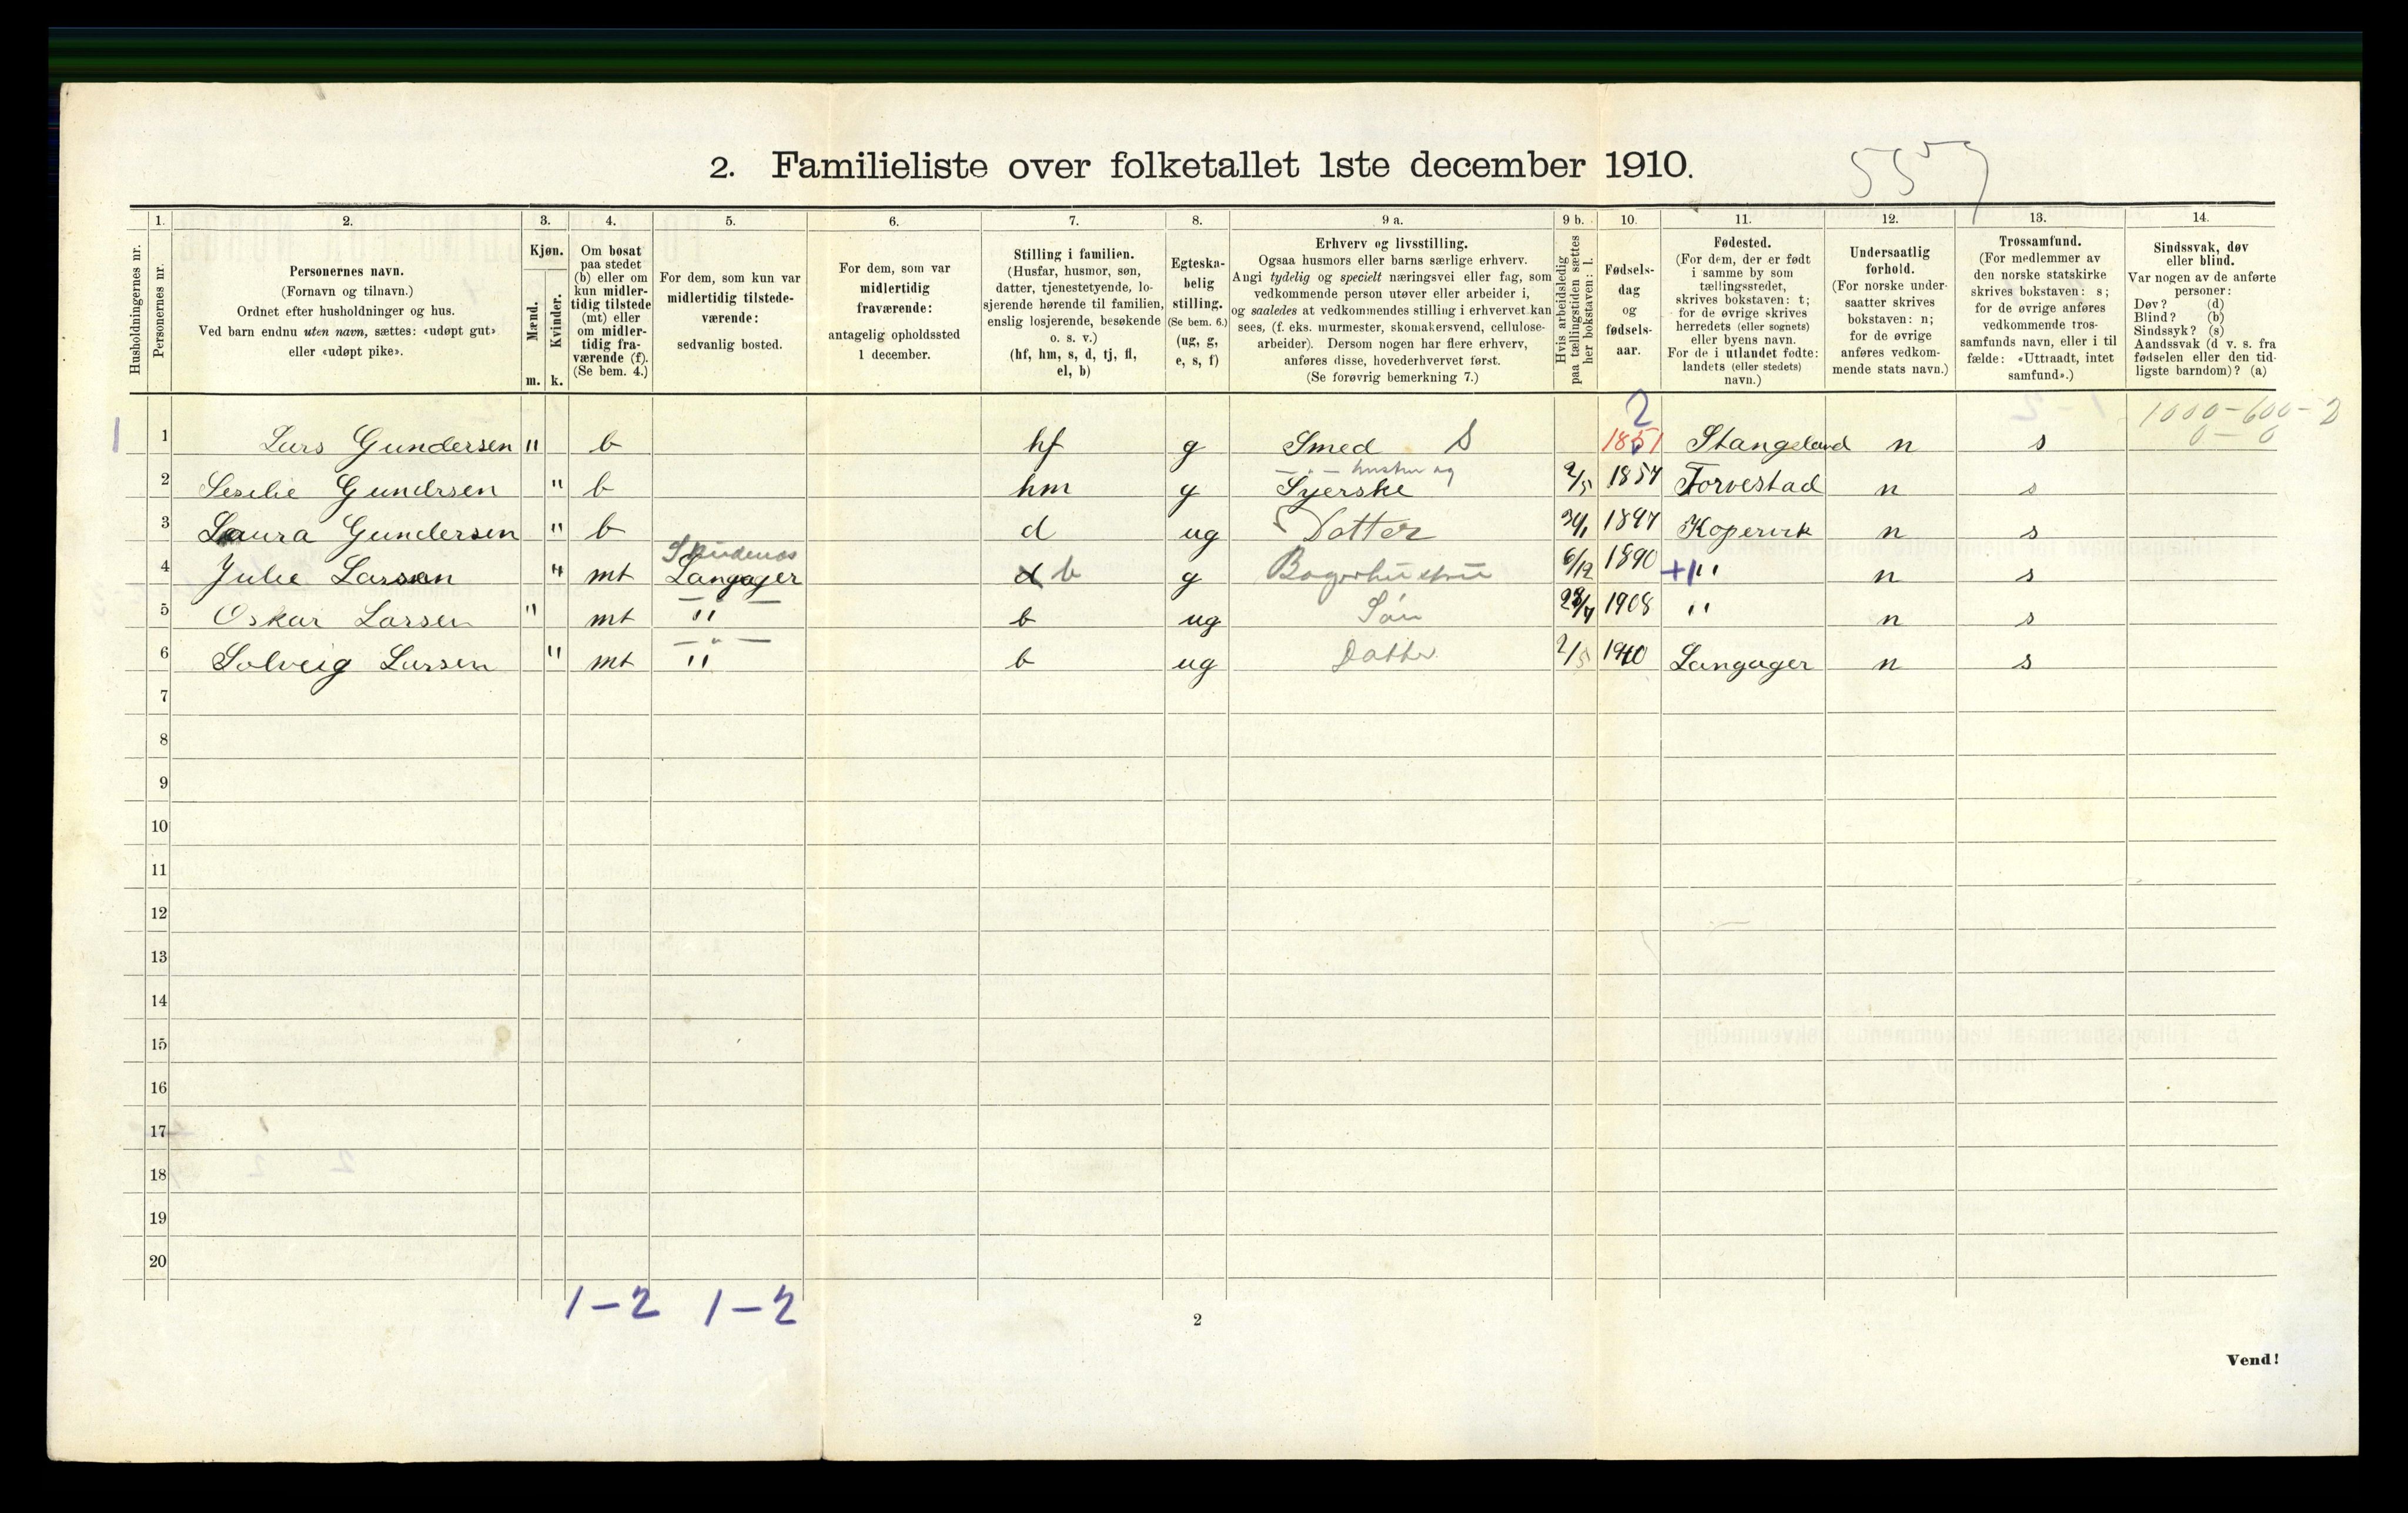 2. Familieliste over folketallet 1ste december 1910.
1. 2. 3. 4. 5. 6. 7. 8. 9 a. 9 b. 10. 11. 12. 13. 14.
Husholdningernes nr.
Personernes nr.
Personernes navn.
(Fornavn og tilnavn.)
Ordnet efter husholdninger og hus.
Ved barn endnu uten navn, sættes: «udøpt gut»
eller «udøpt pike».
Kjøn.
Mænd.
Kvinder.
m. k.
Om bosat
paa stedet
(b) eller om
kun midler-
tidig tilstede
(mt) eller
om midler-
tidig fra-
værende (f).
(Se bem. 4.)
For dem, som kun var
midlertidig tilstede-
værende:
sedvanlig bosted.
For dem, som var
midlertidig
fraværende:
antagelig opholdssted
1 december.
Stilling i familien.
(Husfar, husmor, søn,
datter, tjenestetyende, lo-
sjerende hørende til familien,
enslig losjerende, besøkende
o. s. v.)
(hf, hm, s, d, tj, fl,
el, b)
Egteska-
belig
stilling.
(Se bem. 6.)
(ug, g,
e, s, f)
Erhverv og livsstilling.
Ogsaa husmors eller barns særlige erhverv.
Angi tydelig og specielt næringsvei eller fag, som
vedkommende person utøver eller arbeider i,
og saaledes at vedkommendes stilling i erhvervet kan
sees, (f. eks. murmester, skomakersvend, cellulose-
arbeider). Dersom nogen har flere erhverv,
anføres disse, hovederhvervet først.
(Se forøvrig bemerkning 7.)
Hvis arbeidsledig
paa tællingstiden sættes
her bokstaven: l.
Fødsels-
dag
og
fødsels-
aar.
Fødested.
(For dem, der er født
i samme by som
tællingsstedet,
skrives bokstaven: t;
for de øvrige skrives
herredets (eller sognets)
eller byens navn.
For de i utlandet fødte:
landets (eller stedets)
navn.)
Undersaatlig
forhold.
(For norske under-
saatter skrives
bokstaven: n;
for de øvrige
anføres vedkom-
mende stats navn.)
Trossamfund.
(For medlemmer av
den norske statskirke
skrives bokstaven: s;
for de øvrige anføres
vedkommende tros-
samfunds navn, eller i til
fælde: «Uttraadt, intet
samfund».)
Sindssvak, døv
eller blind.
Var nogen av de anførte
personer:
Døv? (d)
Blind? (b)
Sindssyk? (s)
Aandssvak (d v. s. fra
fødselen eller den tid-
ligste barndom)? (a)
2 1000-600-2
1 1 Lars Gundersen " b hf g Smed S 1851 Stangeland n s 0-0
2 Seselie Gundrsen " b hm g Syerske 2/5 1857 Torvestad n s
3 Laura Gundersen " b d ug Datter 1897 Kopervik n s
Skudenes
4 Julie Larsen " mt Langager d b g 6/12 1890 " n s
5 Oskar Larsen " mt " b ug Søn 1908 " n s
6 Solveig Larsen " mt " b ug Datter 2/5 1910 Langager n s
7
8
9
10
11
12
13
14
15
16
17
18
19
20
1-2 1-2
2
Vend!